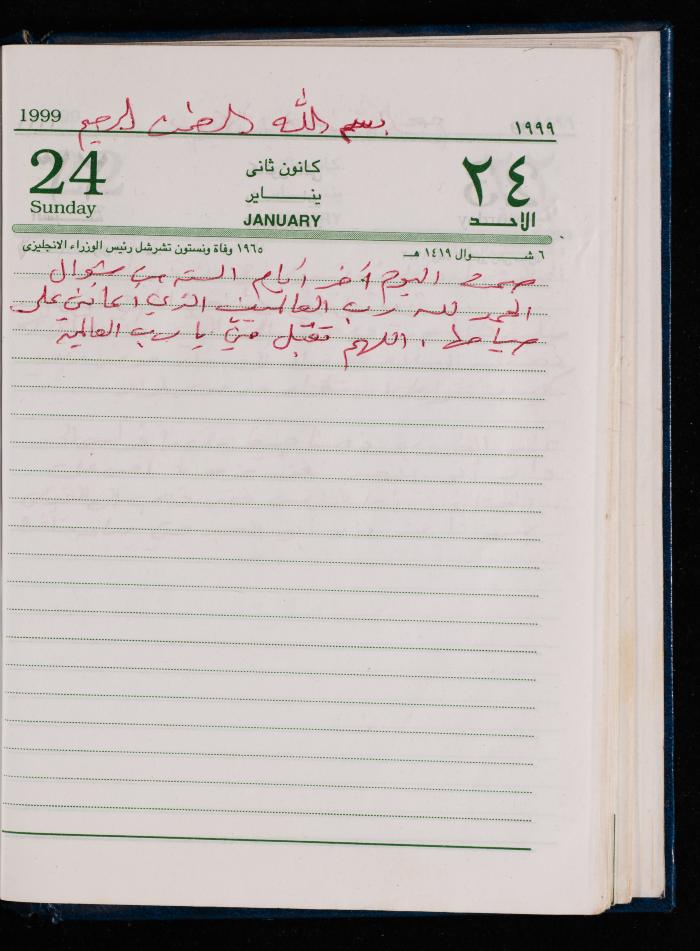 1999 بسم الله الرحمن الرحيم ١٩٩٩
24 كانون ثاني ٢٤
Sunday ينـــايـر الأحـد
JANUARY
٦ شـــوال ١٤١٩ هـ ١٩٦٥ وفاة ونستون تشرشل رئيس الوزراء الانجليزي
صمت اليوم آخر أيام الستة من شوال
الحمد لله رب العالمين الذي أعانني على
صيامها ، اللهم تقبل مني يا رب العالمين